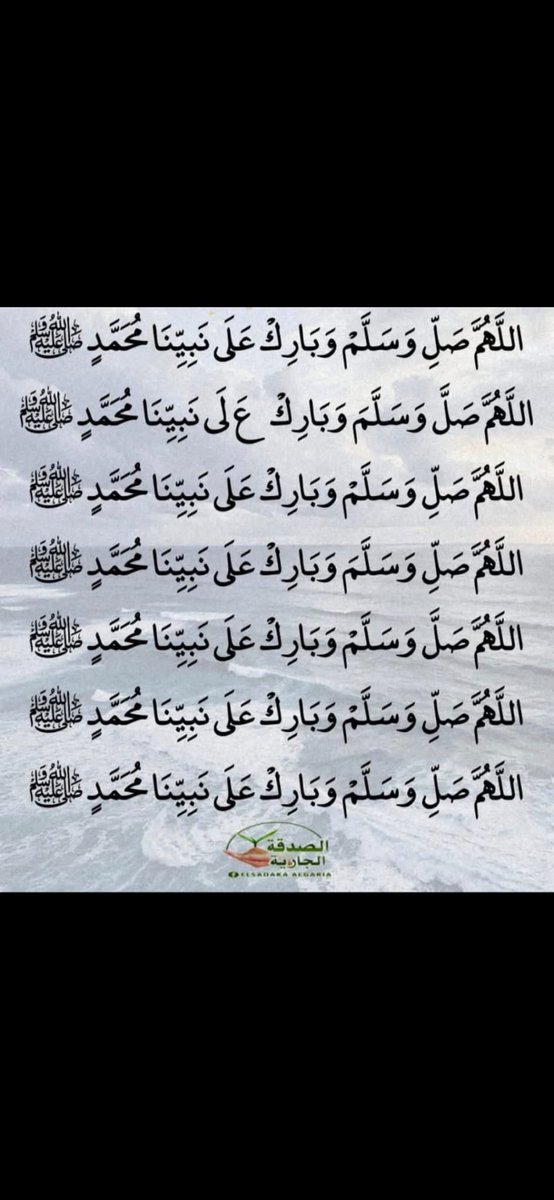 اللَّهُمَّ صَلِّ وَسَلَّمْ وَبَارِكْ عَلَى نَبِيِّنَا مُحَمَّدٍ ﷺ
اللَّهُمَّ صَلَّ وَسَلَّمَ وَبَارِكْ عَ لَى نَبِيِّنَا مُحَمَّدٍ ﷺ
اللَّهُمَّ صَلِّ وَسَلَّمْ وَبَارِكْ عَلَى نَبِيِّنَا مُحَمَّدٍ ﷺ
اللَّهُمَّ صَلِّ وَسَلَّمَ وَبَارِكْ عَلَى نَبِيِّنَا مُحَمَّدٍ ﷺ
اللَّهُمَّ صَلَّ وَسَلَّمْ وَبَارِكْ عَلَى نَبِيِّنَا مُحَمَّدٍ ﷺ
اللَّهُمَّ صَلِّ وَسَلَّمْ وَبَارِكْ عَلَى نَبِيِّنَا مُحَمَّدٍ ﷺ
اللَّهُمَّ صَلِّ وَسَلَّمْ وَبَارِكْ عَلَى نَبِيِّنَا مُحَمَّدٍ ﷺ
الصدقة
الجارية
ELSADAKA ALGARIA